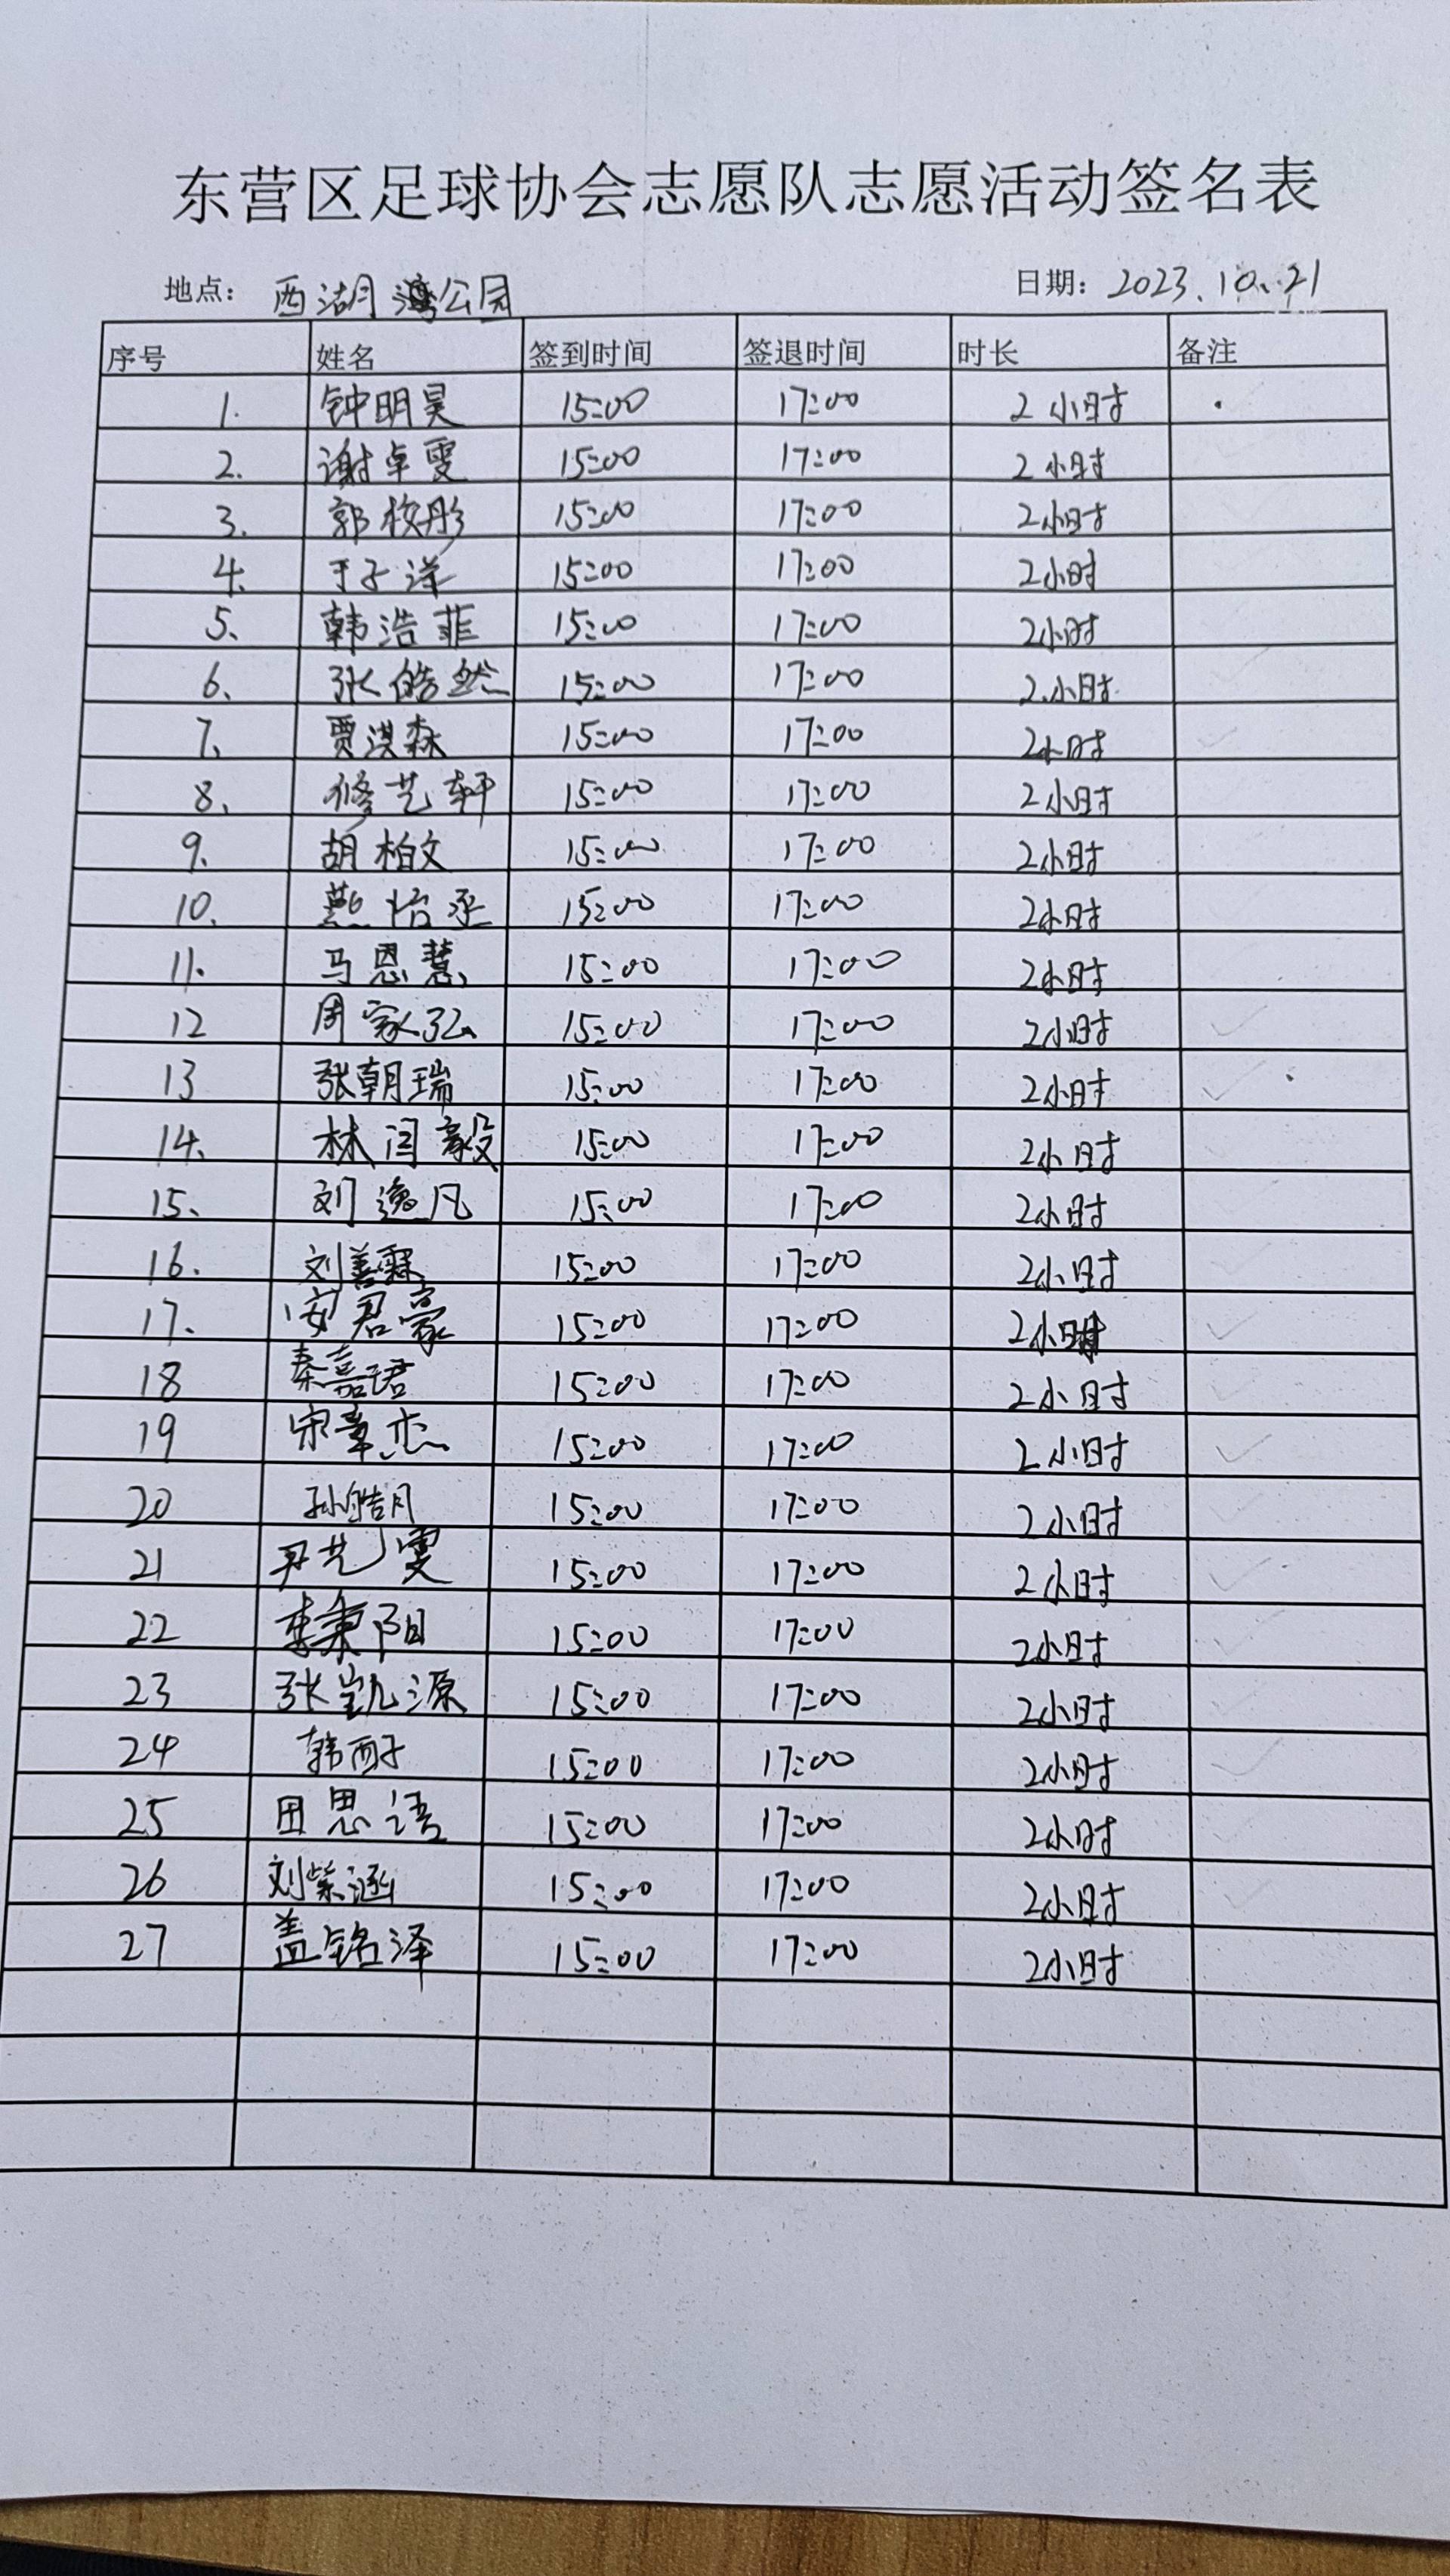 东营区足球协会志愿队志愿活动签名表
地点： 西湖月湾公园 日期： 2023.10.21
序号 姓名 签到时间 签退时间 时长 备注
1. 钟明昊 15:00 17:00 2小时
2. 谢卓雯 15:00 17:00 2小时
3. 郭桉彤 15:00 17:00 2小时
4. 于子洋 15:00 17:00 2小时
5. 韩浩菲 15:00 17:00 2小时
6. 张皓然 15:00 17:00 2小时
7. 贾淇森 15:00 17:00 2小时
8. 修艺轩 15:00 17:00 2小时
9. 胡柏文 15:00 17:00 2小时
10. 燕怡丞 15:00 17:00 2小时
11. 马恩慧 15:00 17:00 2小时
12 周家弘 15:00 17:00 2小时
13 张朝瑞 15:00 17:00 2小时
14. 林闫毅 15:00 17:00 2小时
15. 刘逸凡 15:00 17:00 2小时
16. 刘善霖 15:00 17:00 2小时
17. 安君豪 15:00 17:00 2小时
18 秦嘉珺 15:00 17:00 2小时
19 宋章杰 15:00 17:00 2小时
20 孙皓月 15:00 17:00 2小时
21 尹艺雯 15:00 17:00 2小时
22 秉阳 15:00 17:00 2小时
23 张凯源 15:00 17:00 2小时
24 韩西子 15:00 17:00 2小时
25 田思语 15:00 17:00 2小时
26 刘紫涵 15:00 17:00 2小时
27 盖铭泽 15:00 17:00 2小时